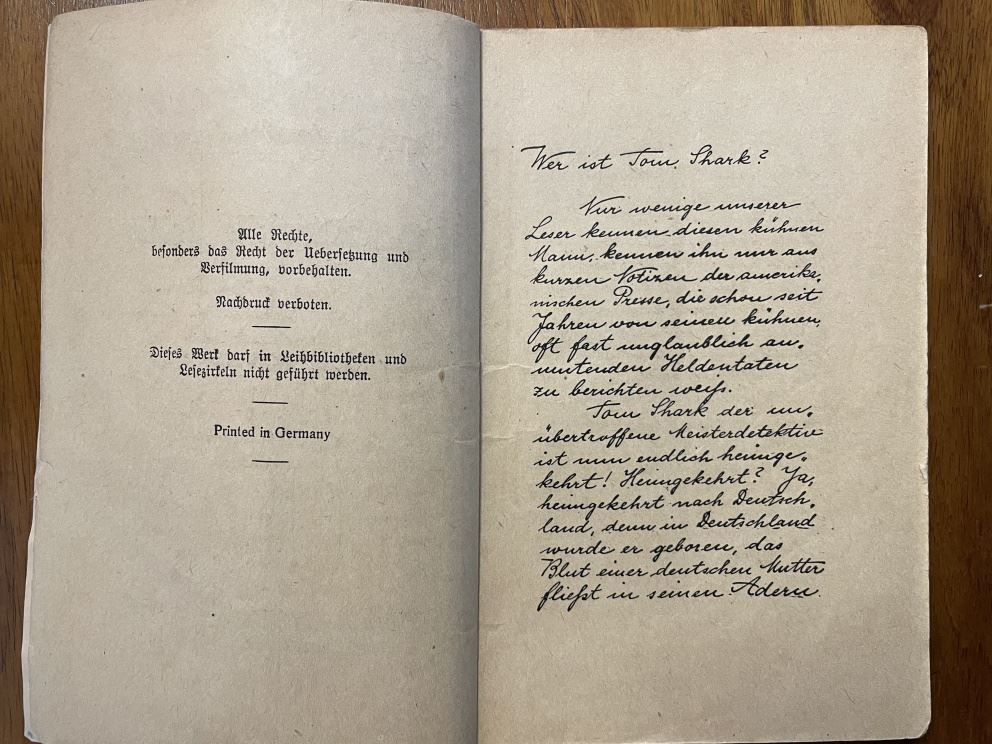 Alle Rechte,
besonders das Recht der Uebersetzung und
Verfilmung, vorbehalten.
Nachdruck verboten.
Dieses Werk darf in Leihbibliotheken und
Lesezirkeln nicht geführt werden.
Printed in Germany
Wer ist Tom Shark?
Nur wenige unserer
Leser kennen diesen kühnen
Mann, kennen ihn nur aus
kurzen Notizen der amerika-
nischen Presse, die schon seit
Jahren von seinen kühnen,
oft fast unglaublich an-
mutenden Heldentaten
zu berichten weiß.
Tom Shark der un-
übertroffene Meisterdetektiv
ist nun endlich heimge-
kehrt! Heimgekehrt? Ja,
heimgekehrt nach Deutsch-
land, denn in Deutschland
wurde er geboren, das
Blut einer deutschen Mutter
fließt in seinen Adern.